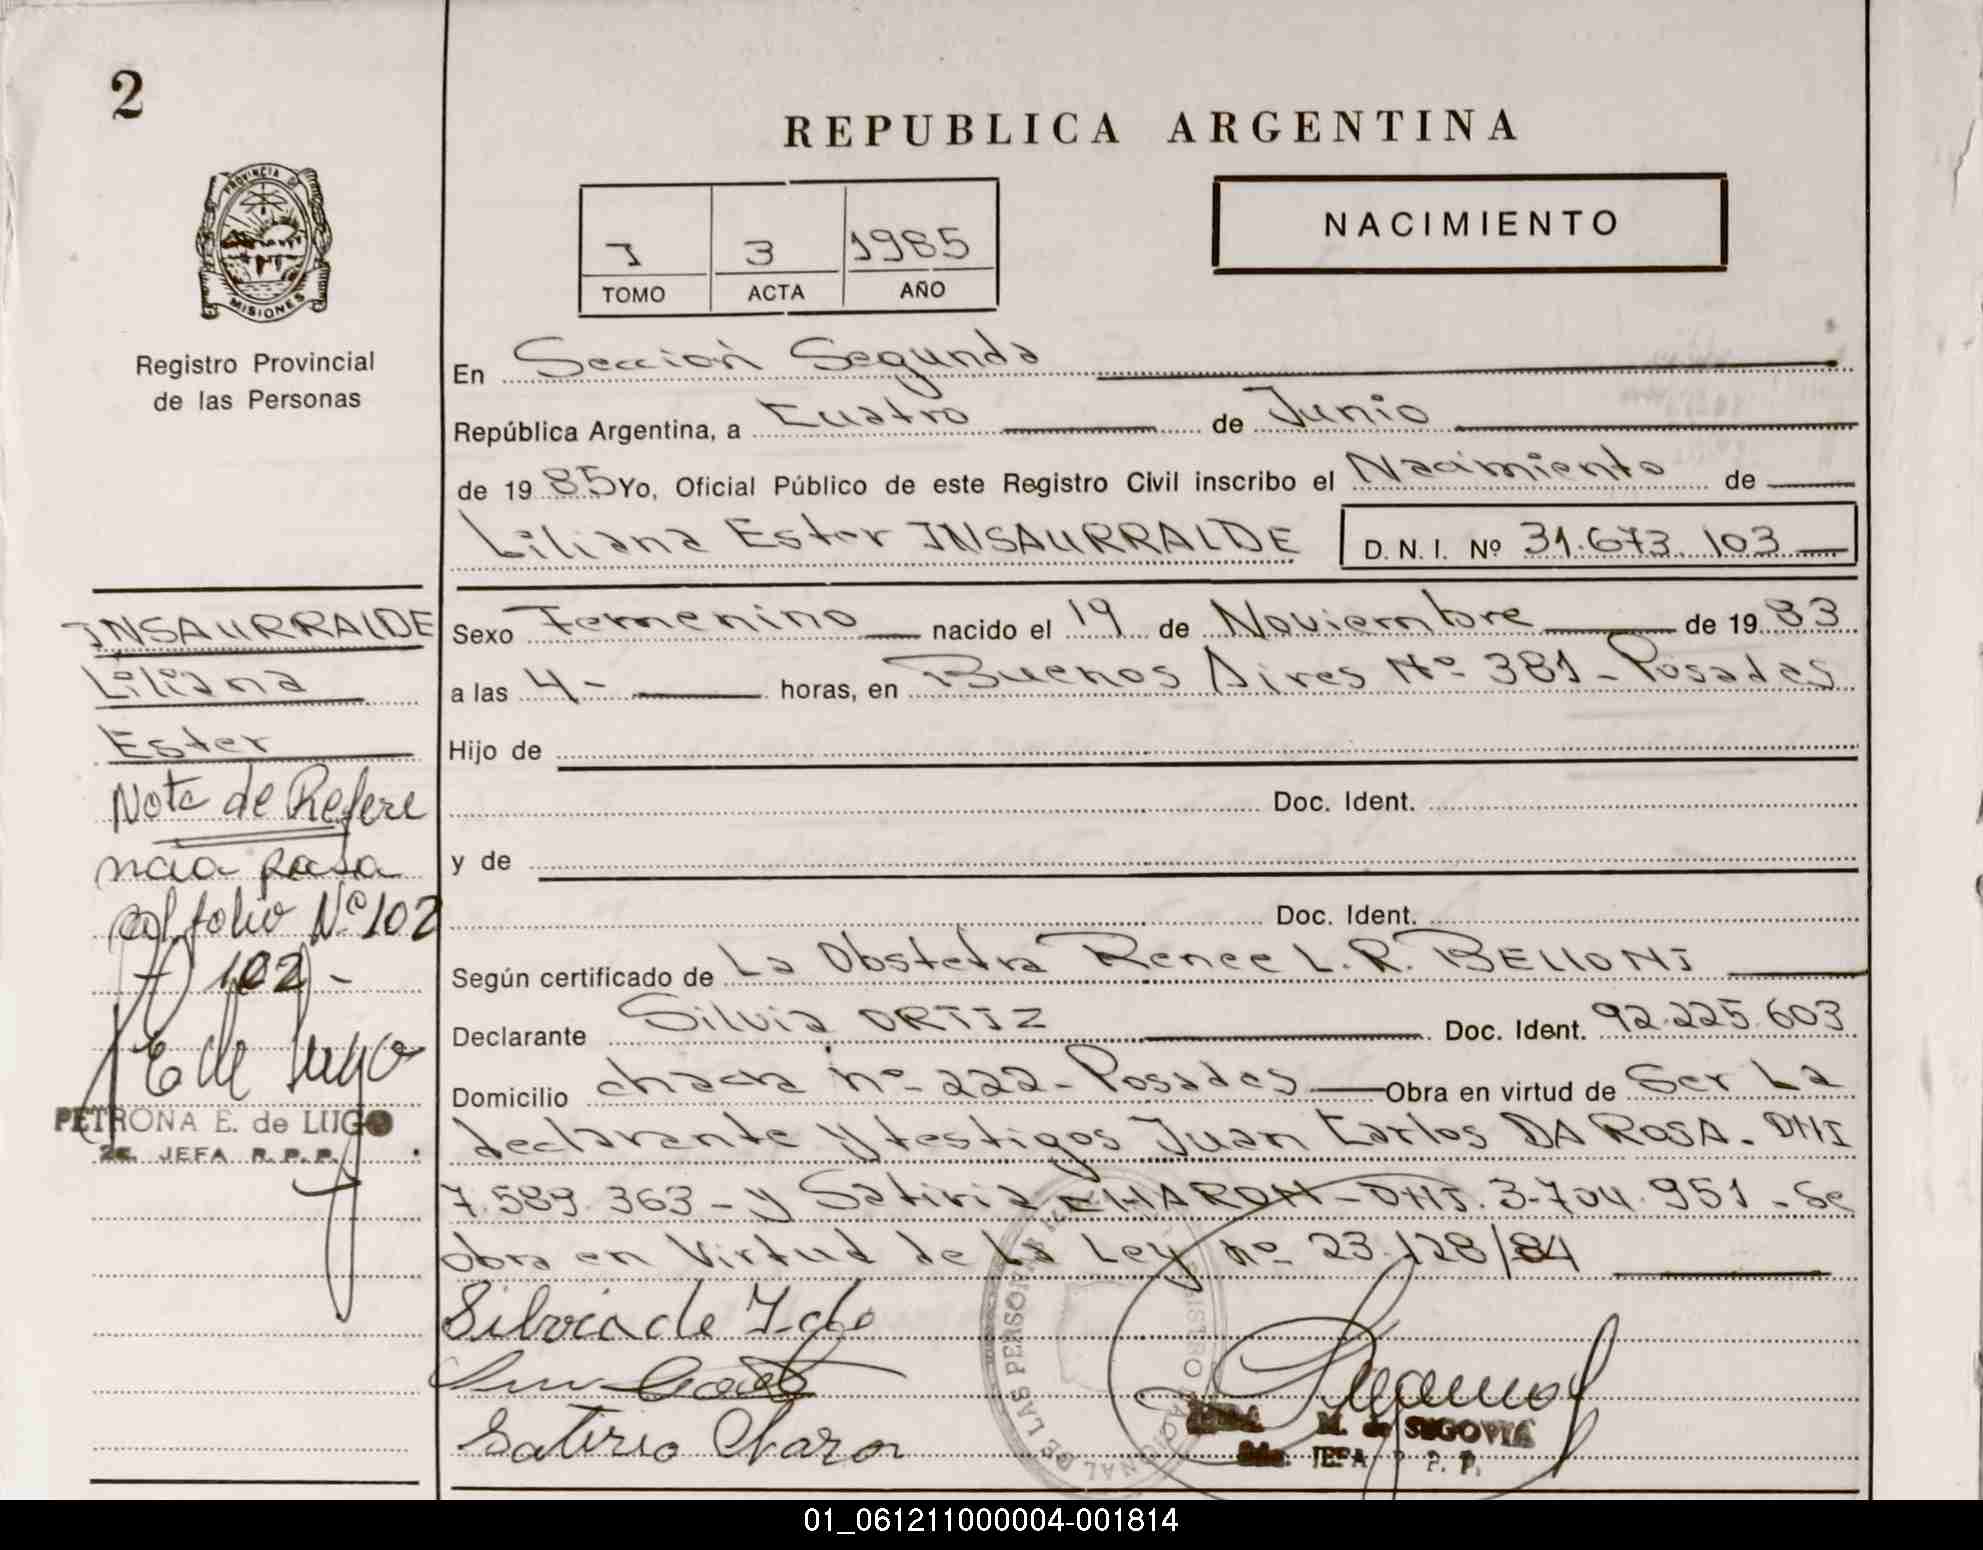 2
REPUBLICA ARGENTINA
PROVINCIA DE
MISIONES
Registro Provincial
de las Personas
I 3 1985
TOMO ACTA AÑO
NACIMIENTO
En Sección Segunda
República Argentina, a Cuatro de Junio
de 1985 Yo, Oficial Público de este Registro Civil inscribo el Nacimiento de
Liliana Ester INSAURRALDE D. N. I. Nº 31.673.103
INSAURRALDE
Liliana
Ester
Nota de Refere
ncia pasa
al folio Nº 102
102-
E de Lugo
PETRONA E. de LUGO
2a. JEFA R. P. P.
Sexo Femenino nacido el 19 de Noviembre de 1983
a las 4- horas, en Buenos Aires Nº 381 - Posadas
Hijo de
Doc. Ident.
y de
Doc. Ident.
Según certificado de La Obstetra Renee L. R. BELLONI
Declarante Silvia ORTIZ Doc. Ident. 92.225.603
Domicilio chacra nº 222 - Posadas Obra en virtud de Ser La
declarante y testigos Juan Carlos DA ROSA - DNI
7.589.363 - y Satirio CHARON - DNI. 3.704.951 - Se
obra en Virtud de La Ley nº 23.128/84
Silvia de
Satirio Charon
M. de SEGOVIA
2da. JEFA P. P.
01_061211000004-001814